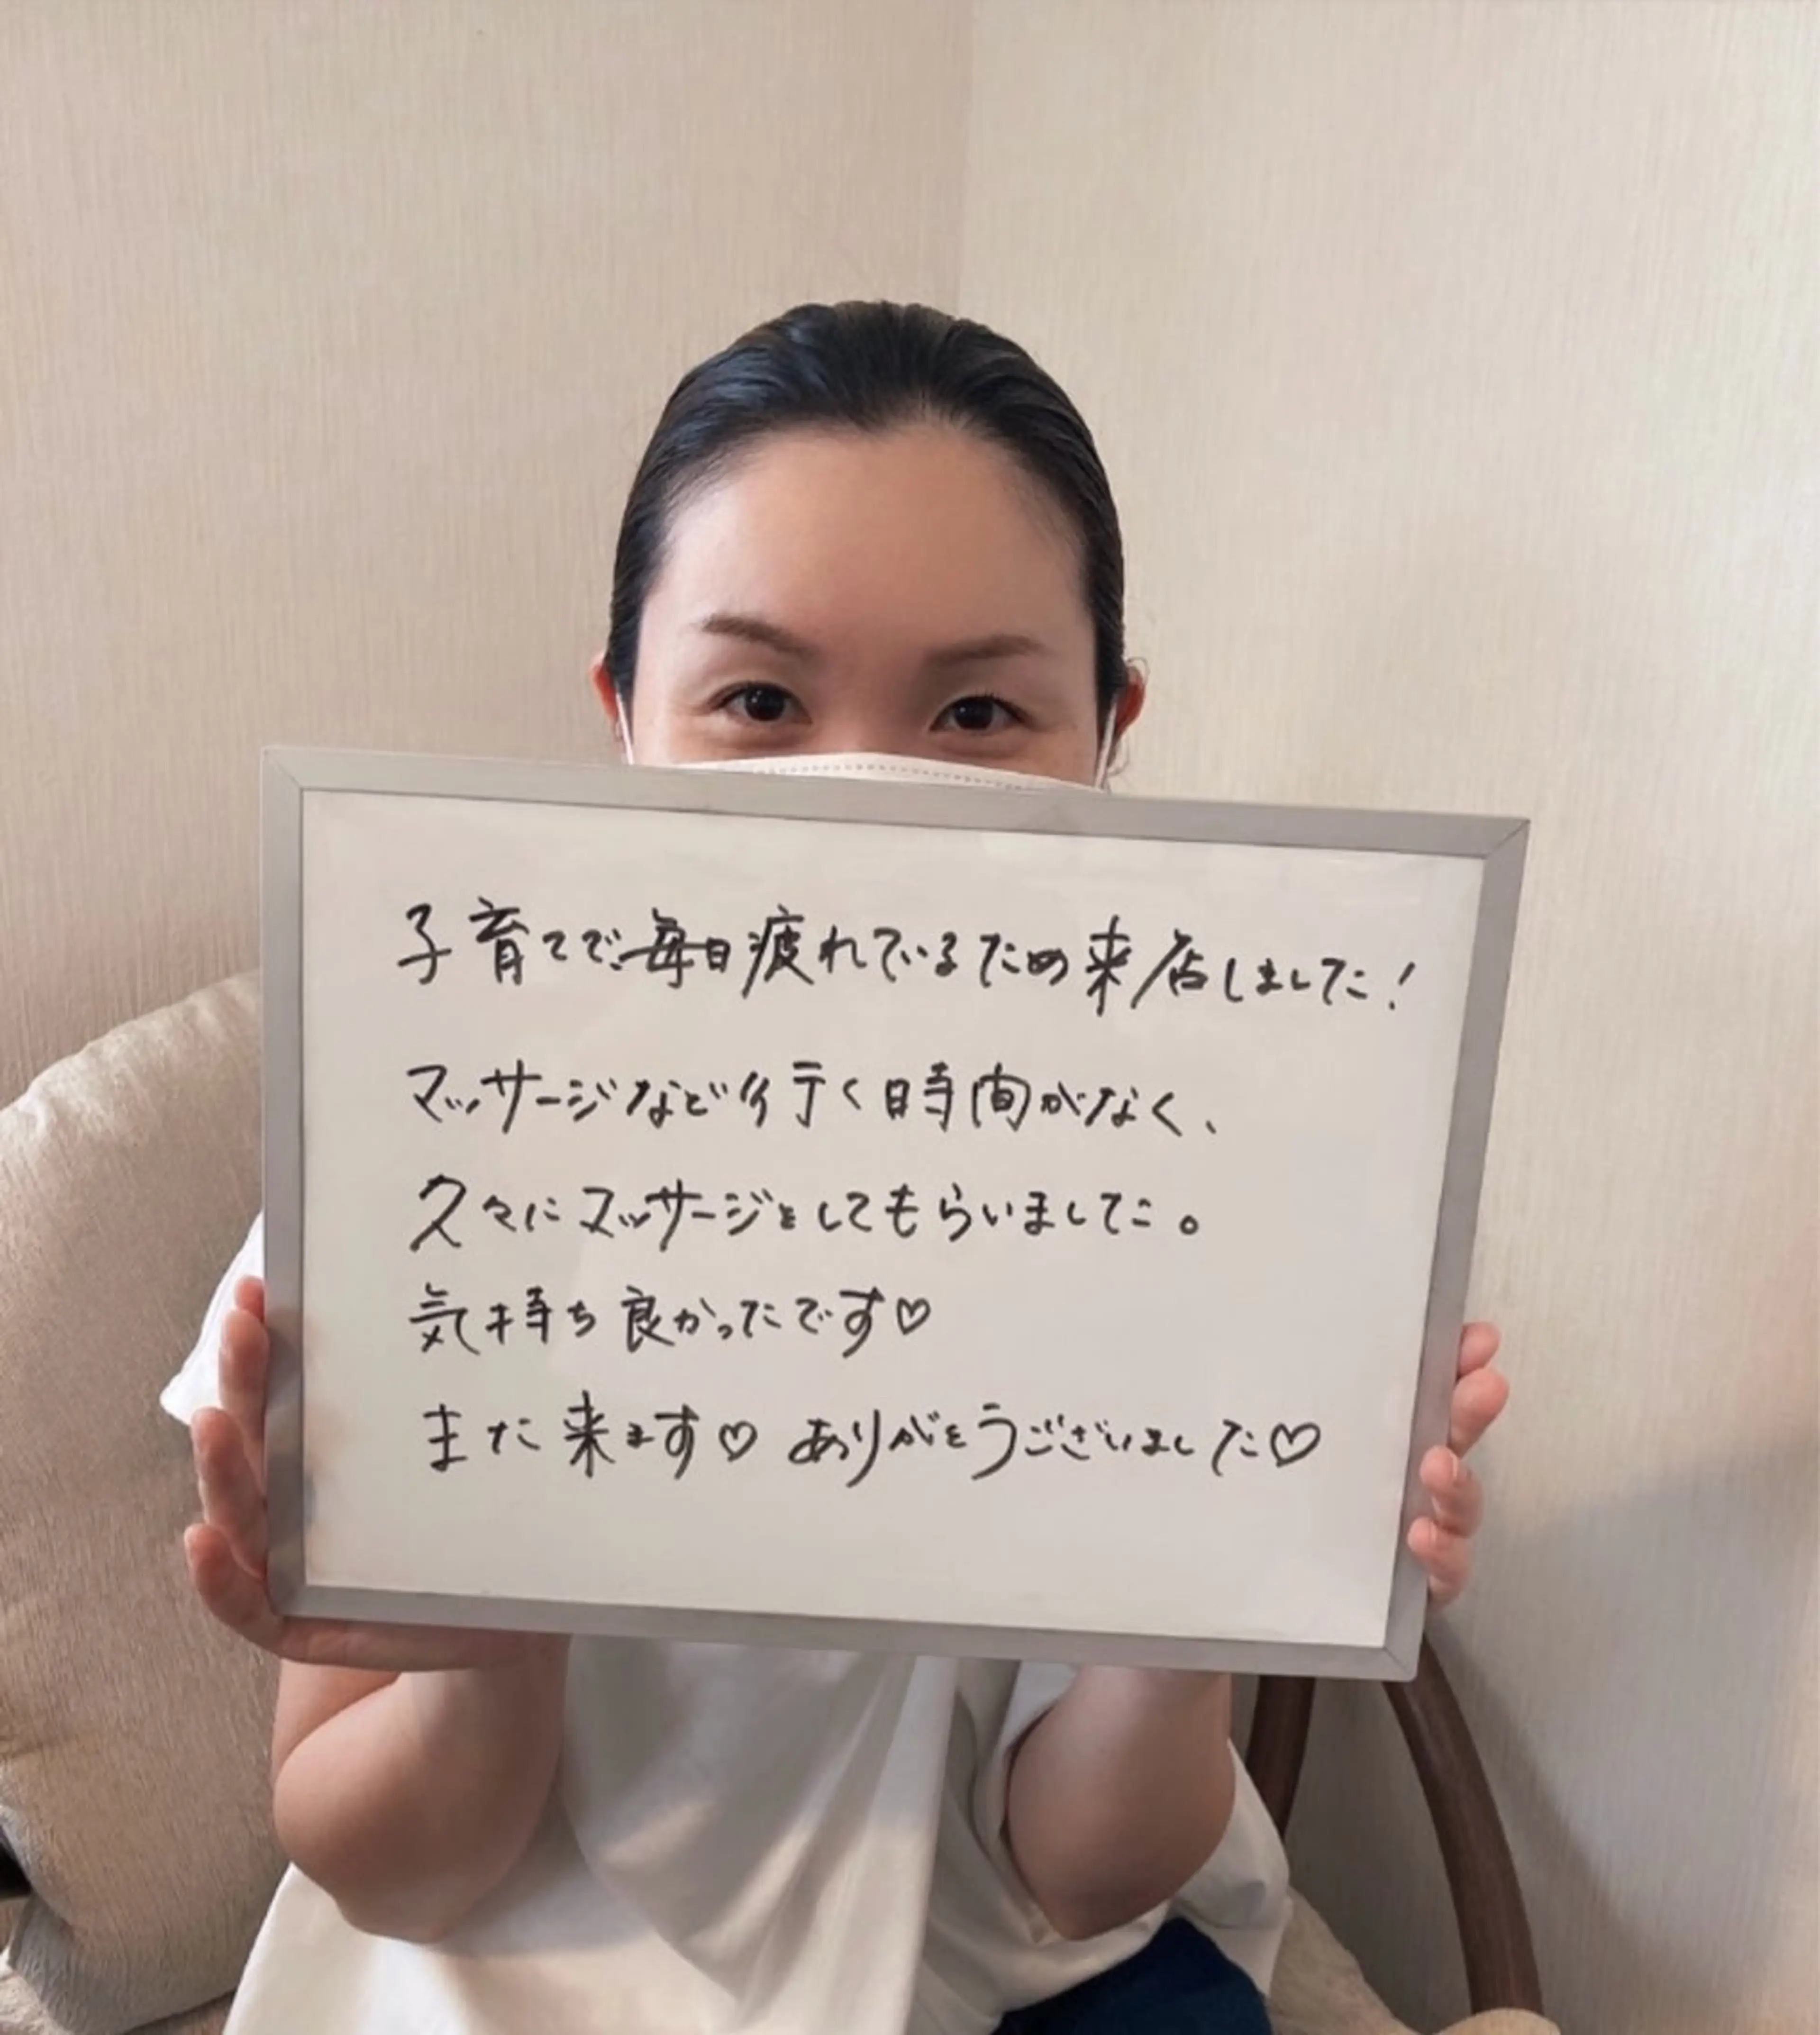 子育てで毎日疲れているため来店しました！
マッサージなど行く時間がなく、
久々にマッサージをしてもらいました。
気持ち良かったです♡
また来ます♡ ありがとうございました♡